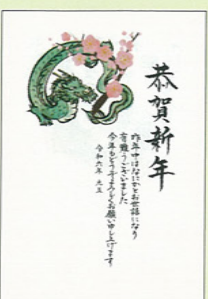 恭賀新年
昨年中はなにかとお世話になり
有難うございました
今年もどうぞよろしくお願い申し上げます
令和六年 元旦